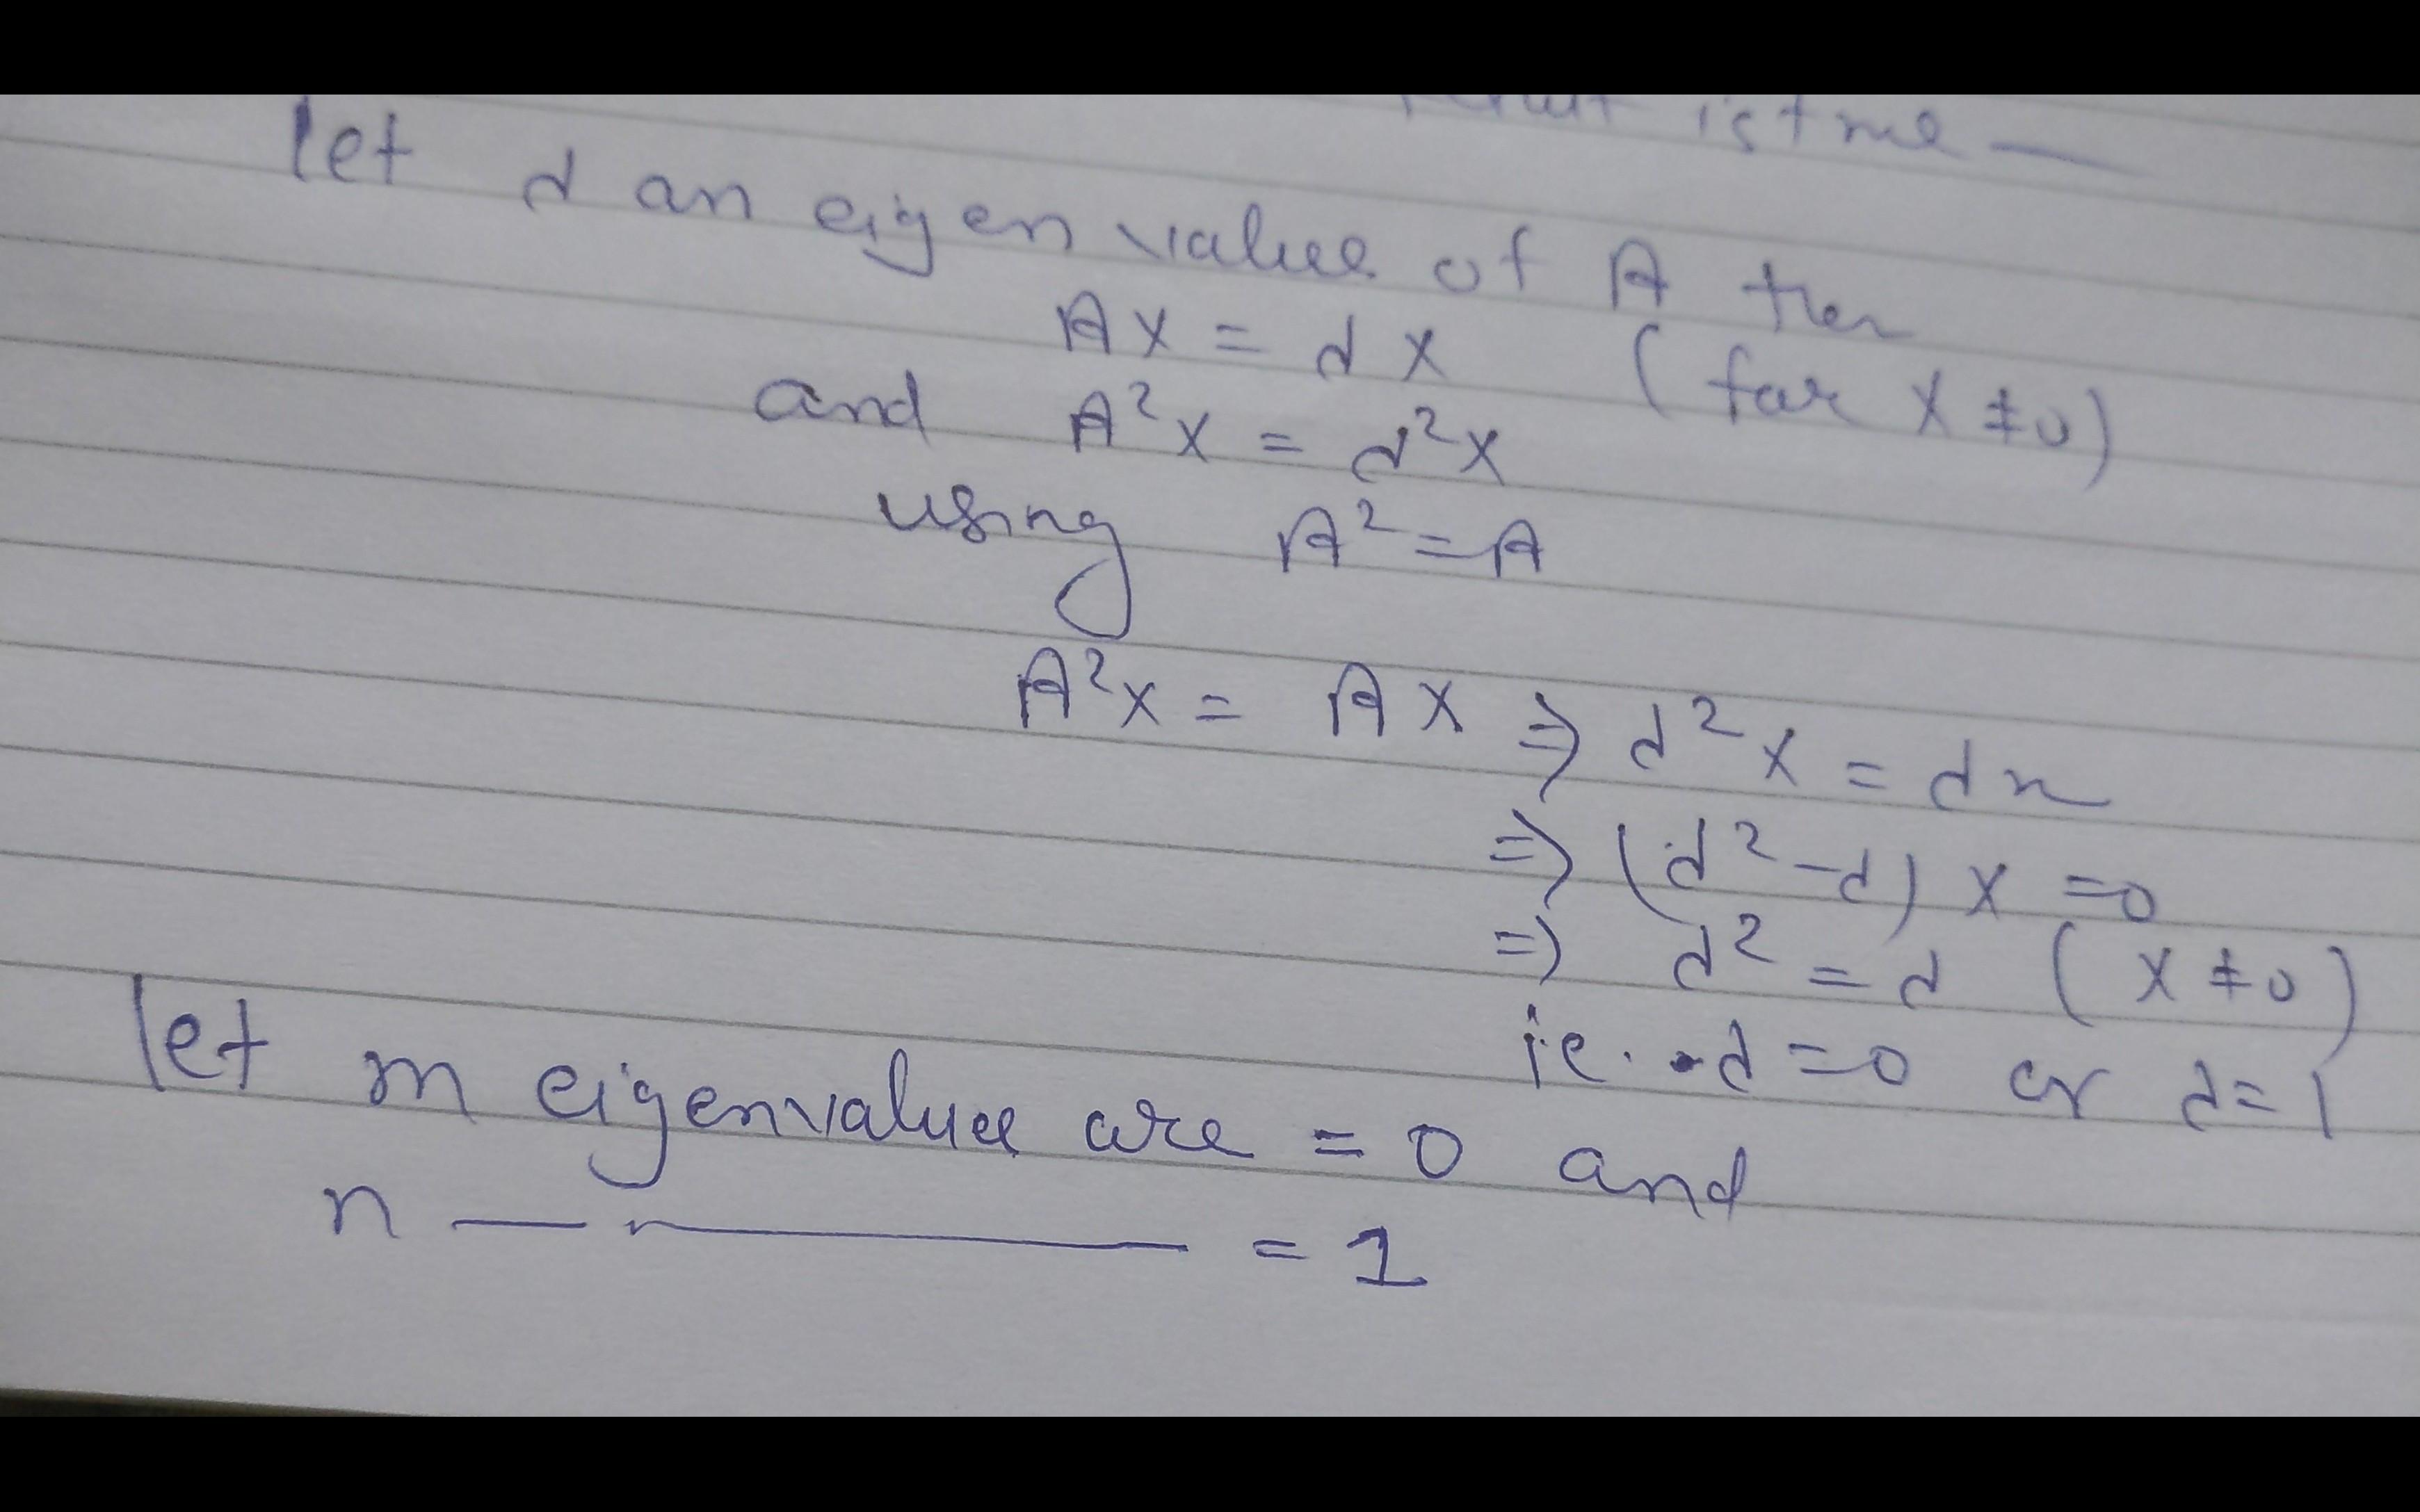 is true —
let d an eigen value of A then
AX = dX (for X ≠ 0)
and A²X = d²X
using A² = A
A²X = AX ⇒ d²X = dx
⇒ (d² - d) X = 0
⇒ d² = d (X ≠ 0)
ie. d = 0 or d = 1
let m eigenvalues are = 0 and
n — — = 1